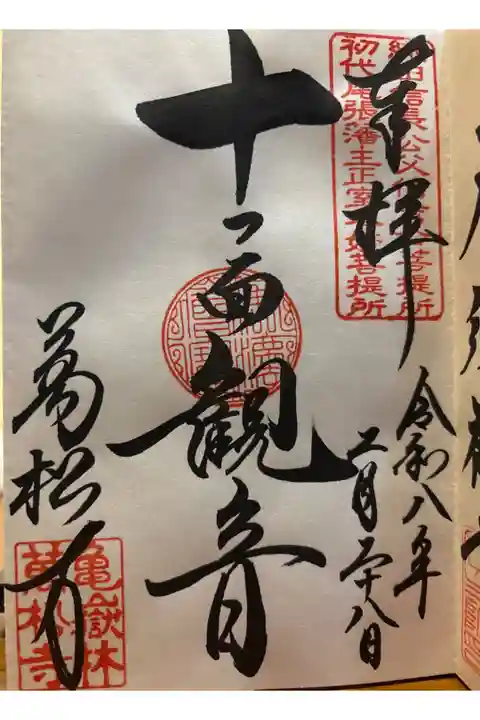 奉拝
織田信長公父信秀公菩提所
初代尾張藩主正室春姫菩提所
令和八年
二月二十八日
十一面觀音
萬松寺
亀嶽林
萬松寺